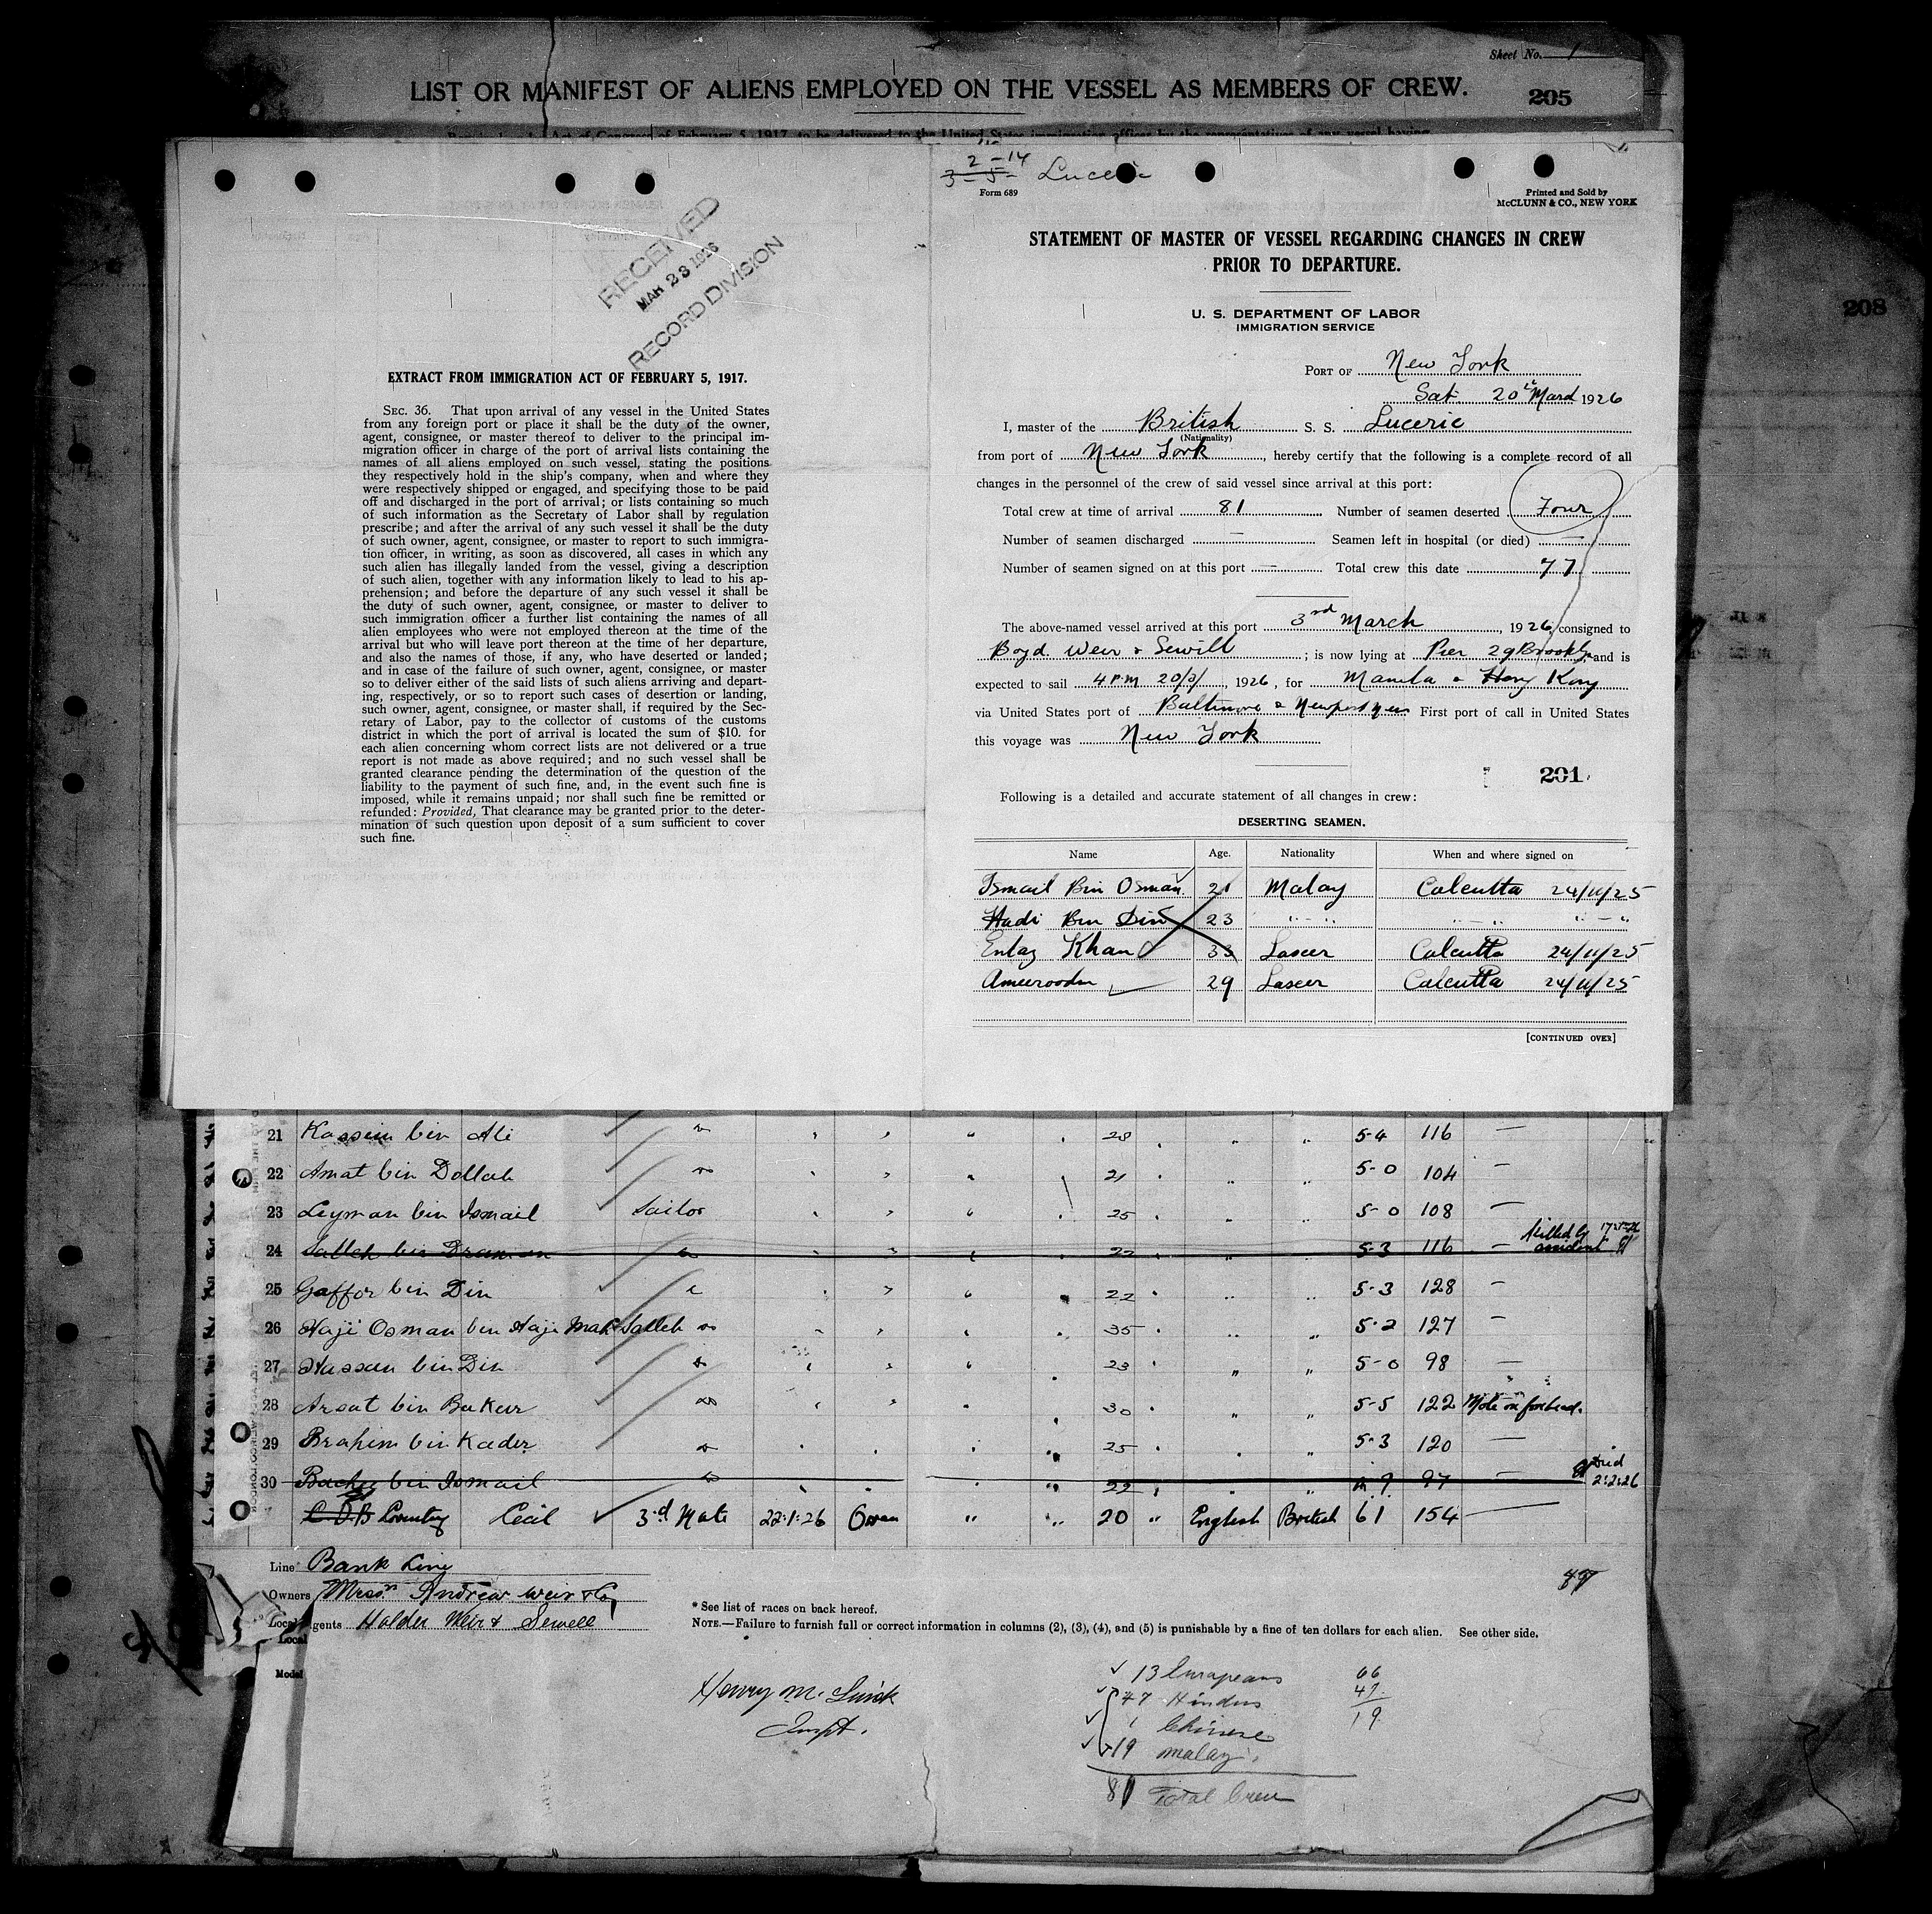 Sheet No. 1
LIST OR MANIFEST OF ALIENS EMPLOYED ON THE VESSEL AS MEMBERS OF CREW.
205
208
RECEIVED
MAR 23 1926
RECORD DIVISION
EXTRACT FROM IMMIGRATION ACT OF FEBRUARY 5, 1917.
SEC. 36. That upon arrival of any vessel in the United States
from any foreign port or place it shall be the duty of the owner,
agent, consignee, or master thereof to deliver to the principal im-
migration officer in charge of the port of arrival lists containing the
names of all aliens employed on such vessel, stating the positions
they respectively hold in the ship's company, when and where they
were respectively shipped or engaged, and specifying those to be paid
off and discharged in the port of arrival; or lists containing so much
of such information as the Secretary of Labor shall by regulation
prescribe; and after the arrival of any such vessel it shall be the duty
of such owner, agent, consignee, or master to report to such immigra-
tion officer, in writing, as soon as discovered, all cases in which any
such alien has illegally landed from the vessel, giving a description
of such alien, together with any information likely to lead to his ap-
prehension; and before the departure of any such vessel it shall be
the duty of such owner, agent, consignee, or master to deliver to
such immigration officer a further list containing the names of all
alien employees who were not employed thereon at the time of the
arrival but who will leave port thereon at the time of her departure,
and also the names of those, if any, who have deserted or landed;
and in case of the failure of such owner, agent, consignee, or master
so to deliver either of the said lists of such aliens arriving and depart-
ing, respectively, or so to report such cases of desertion or landing,
such owner, agent, consignee, or master shall, if required by the Sec-
retary of Labor, pay to the collector of customs of the customs
district in which the port of arrival is located the sum of $10. for
each alien concerning whom correct lists are not delivered or a true
report is not made as above required; and no such vessel shall be
granted clearance pending the determination of the question of the
liability to the payment of such fine, and, in the event such fine is
imposed, while it remains unpaid; nor shall such fine be remitted or
refunded: Provided, That clearance may be granted prior to the deter-
mination of such question upon deposit of a sum sufficient to cover
such fine.
2-14
3-5-
Form 689
Printed and Sold by
McCLUNN & CO., NEW YORK
STATEMENT OF MASTER OF VESSEL REGARDING CHANGES IN CREW
PRIOR TO DEPARTURE.
U. S. DEPARTMENT OF LABOR
IMMIGRATION SERVICE
PORT OF New York
Sat 20th March 1926
I, master of the British S. S. Luceric
(Nationality)
from port of New York, hereby certify that the following is a complete record of all
changes in the personnel of the crew of said vessel since arrival at this port:
Total crew at time of arrival 81 Number of seamen deserted Four
Number of seamen discharged — Seamen left in hospital (or died) —
Number of seamen signed on at this port — Total crew this date 77
The above-named vessel arrived at this port 3rd March, 1926, consigned to
Boyd Weir & Sewill; is now lying at Pier 29 Brookly and is
expected to sail 4 P.M 20/3/, 1926, for Manila & Hong Kong
via United States port of Baltimore & Newport News First port of call in United States
this voyage was New York
201
Following is a detailed and accurate statement of all changes in crew:
DESERTING SEAMEN.
Name Age. Nationality When and where signed on
Ismail Bin Osman 21 Malay Calcutta 24/11/25
Hadi Bin Din 23 " - " " - " " - "
Entaz Khan 33 Lascer Calcutta 24/11/25
Ameerooden 29 Lascer Calcutta 24/11/25
[CONTINUED OVER]
21 Kassim bin Ali " 28 " " 5-4 116 —
22 Amat bin Dollah " 21 " " 5-0 104 —
23 Leyman bin Ismail Sailor 25 " " 5-0 108 —
24 Salleh bin Draman " 22 " " 5-3 116 — Killed by accident
25 Gaffor bin Din " 22 " " 5-3 128 —
26 Haji Osman bin Haji Mat Salleh " 35 " " 5-2 127 —
27 Hassan bin Din " 23 " " 5-0 98 —
28 Arsat bin Bakar " 30 " " 5-5 122 Mole on forhead.
29 Brahim bin Kader " 25 " " 5-3 120 —
30 Bachee bin Ismail " 22 " " 97 — Died 2:2:26
Coventry Cecil 3rd Mate 22:1:26 " " 20 " English British 6 1 154 —
Line Bank Line
Owners Messrs Andrew Weir & Co
Local Agents Holder Weir & Sewell
Local
Model
* See list of races on back hereof.
NOTE.—Failure to furnish full or correct information in columns (2), (3), (4), and (5) is punishable by a fine of ten dollars for each alien. See other side.
Henry M.
Inspt.
13 Europeans
47 Hindus
1 Chinese
19 Malay
81 Total Crew
66
47
19